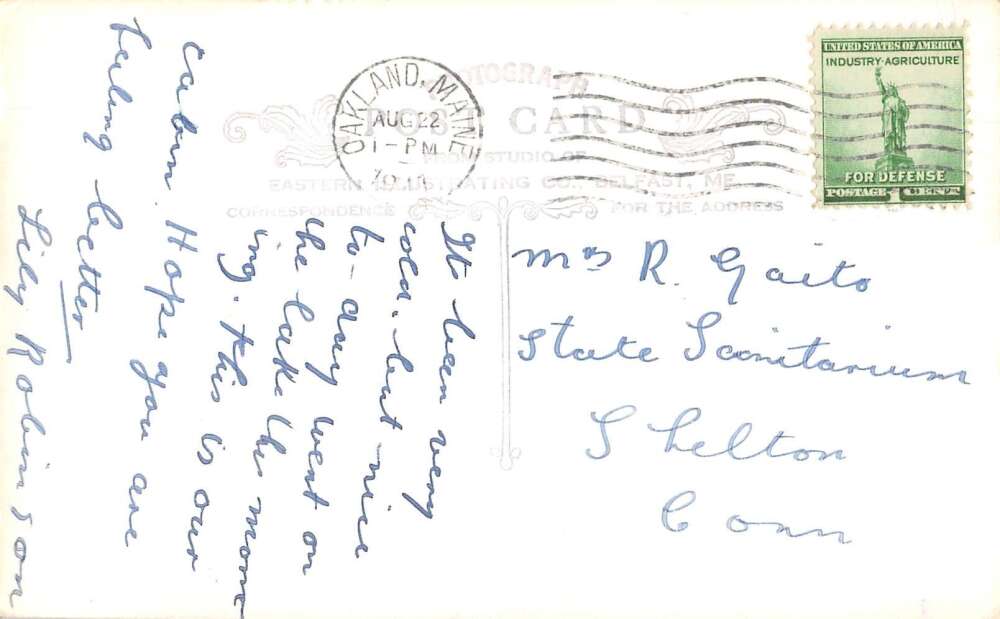 PHOTOGRAPH
POST CARD
FROM STUDIO OF
EASTERN ILLUSTRATING CO., BELFAST, ME.
CORRESPONDENCE
FOR THE ADDRESS
OAKLAND, MAINE
AUG 22
1-PM
UNITED STATES OF AMERICA
INDUSTRY-AGRICULTURE
FOR DEFENSE
POSTAGE 1 CENT
Its been very
cold. but nice
to-day went on
the lake this morn
ing. this is our
cabin. Hope you are
feeling better
Lily Robinson
Mrs R. Gaito
State Sanitarium
Shelton
Conn